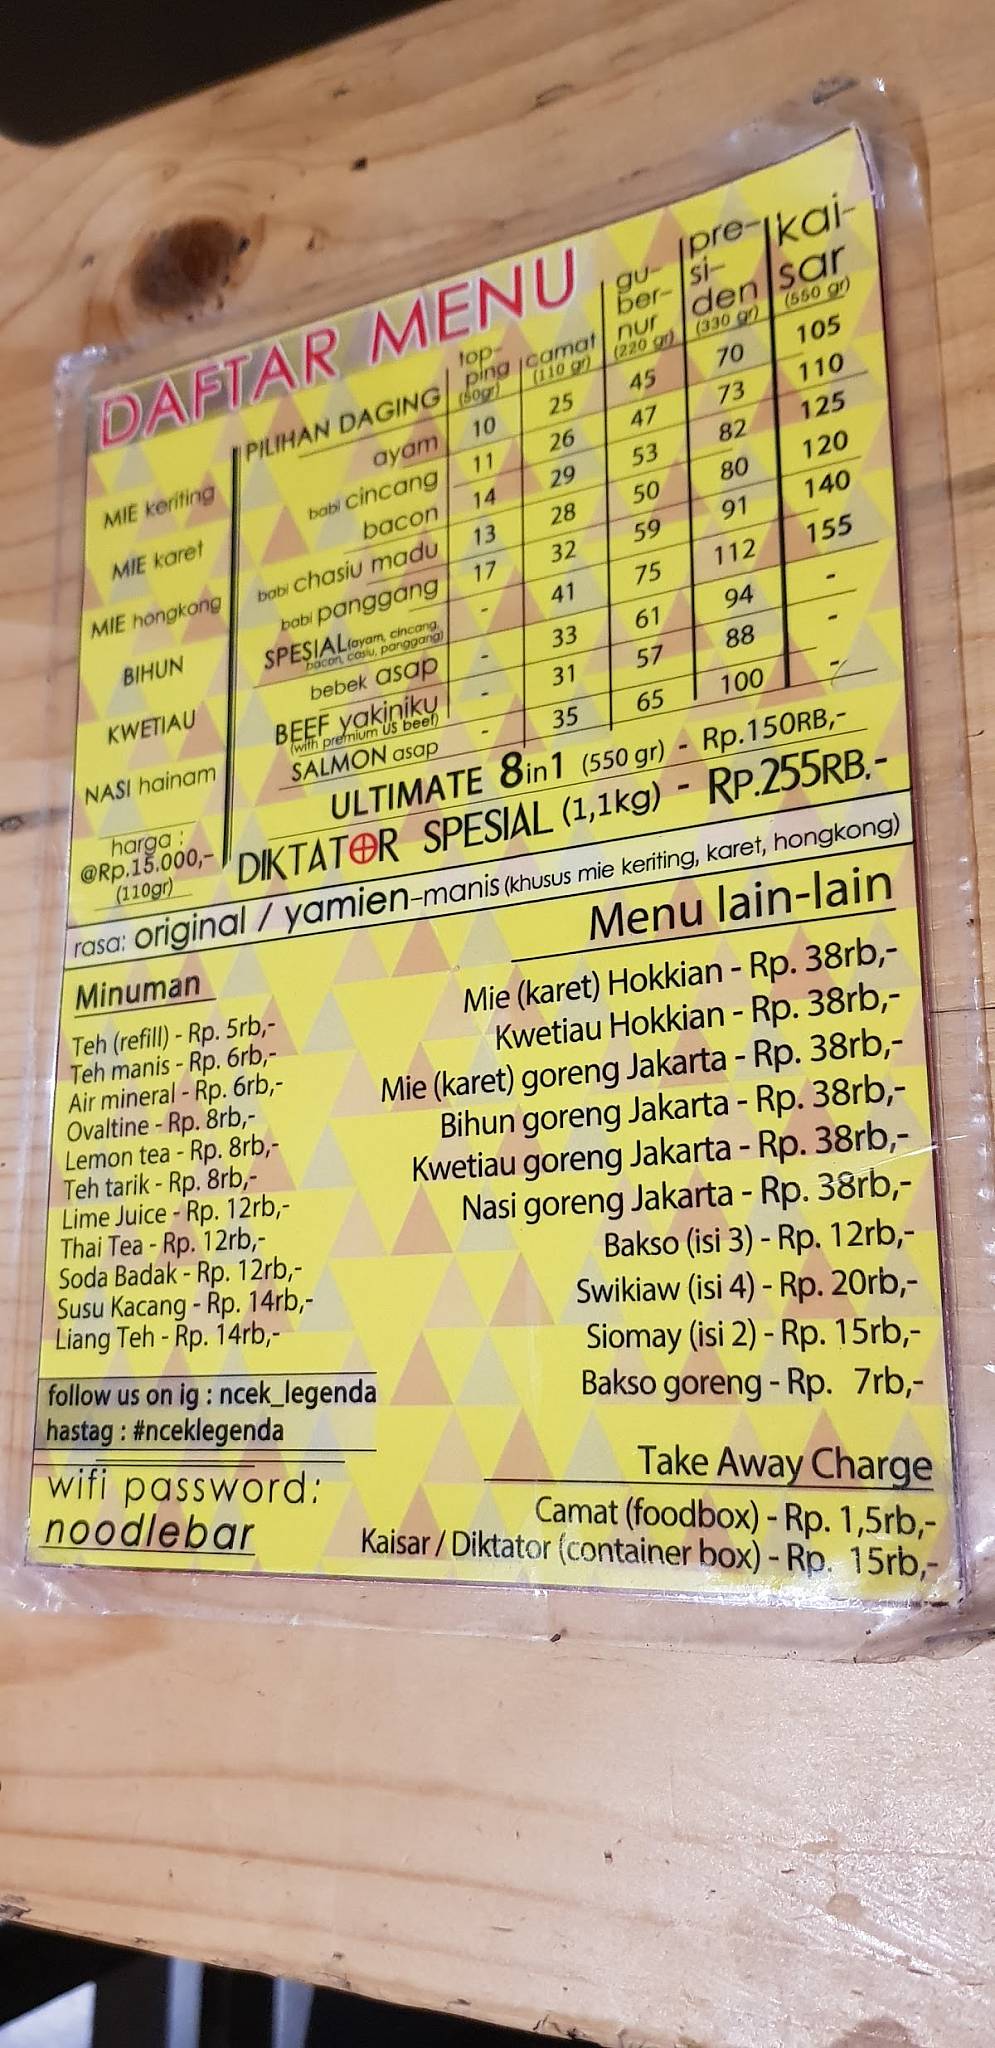 DAFTAR MENU
MIE keriting
MIE karet
MIE hongkong
BIHUN
KWETIAU
NASI hainam
harga :
@Rp.15.000,-
(110gr)
PILIHAN DAGING | top-ping (50gr) | camat (110 gr) | gu-ber-nur (220 gr) | pre-si-den (330 gr) | kai-sar (550 gr)
ayam 10 25 45 70 105
babi cincang 11 26 47 73 110
bacon 14 29 53 82 125
babi chasiu madu 13 28 50 80 120
babi panggang 17 32 59 91 140
SPESIAL (ayam, cincang, bacon, casiu, panggang) - 41 75 112 155
bebek asap - 33 61 94 -
BEEF yakiniku (with premium US beef) - 31 57 88 -
SALMON asap - 35 65 100 -
ULTIMATE 8in1 (550 gr) - Rp.150RB,-
DIKTATOR SPESIAL (1,1kg) - RP.255RB.-
rasa: original / yamien-manis (khusus mie keriting, karet, hongkong)
Minuman
Teh (refill) - Rp. 5rb,-
Teh manis - Rp. 6rb,-
Air mineral - Rp. 6rb,-
Ovaltine - Rp. 8rb,-
Lemon tea - Rp. 8rb,-
Teh tarik - Rp. 8rb,-
Lime Juice - Rp. 12rb,-
Thai Tea - Rp. 12rb,-
Soda Badak - Rp. 12rb,-
Susu Kacang - Rp. 14rb,-
Liang Teh - Rp. 14rb,-
follow us on ig : ncek_legenda
hastag : #nceklegenda
wifi password:
noodlebar
Menu lain-lain
Mie (karet) Hokkian - Rp. 38rb,-
Kwetiau Hokkian - Rp. 38rb,-
Mie (karet) goreng Jakarta - Rp. 38rb,-
Bihun goreng Jakarta - Rp. 38rb,-
Kwetiau goreng Jakarta - Rp. 38rb,-
Nasi goreng Jakarta - Rp. 38rb,-
Bakso (isi 3) - Rp. 12rb,-
Swikiaw (isi 4) - Rp. 20rb,-
Siomay (isi 2) - Rp. 15rb,-
Bakso goreng - Rp. 7rb,-
Take Away Charge
Camat (foodbox) - Rp. 1,5rb,-
Kaisar / Diktator (container box) - Rp. 15rb,-